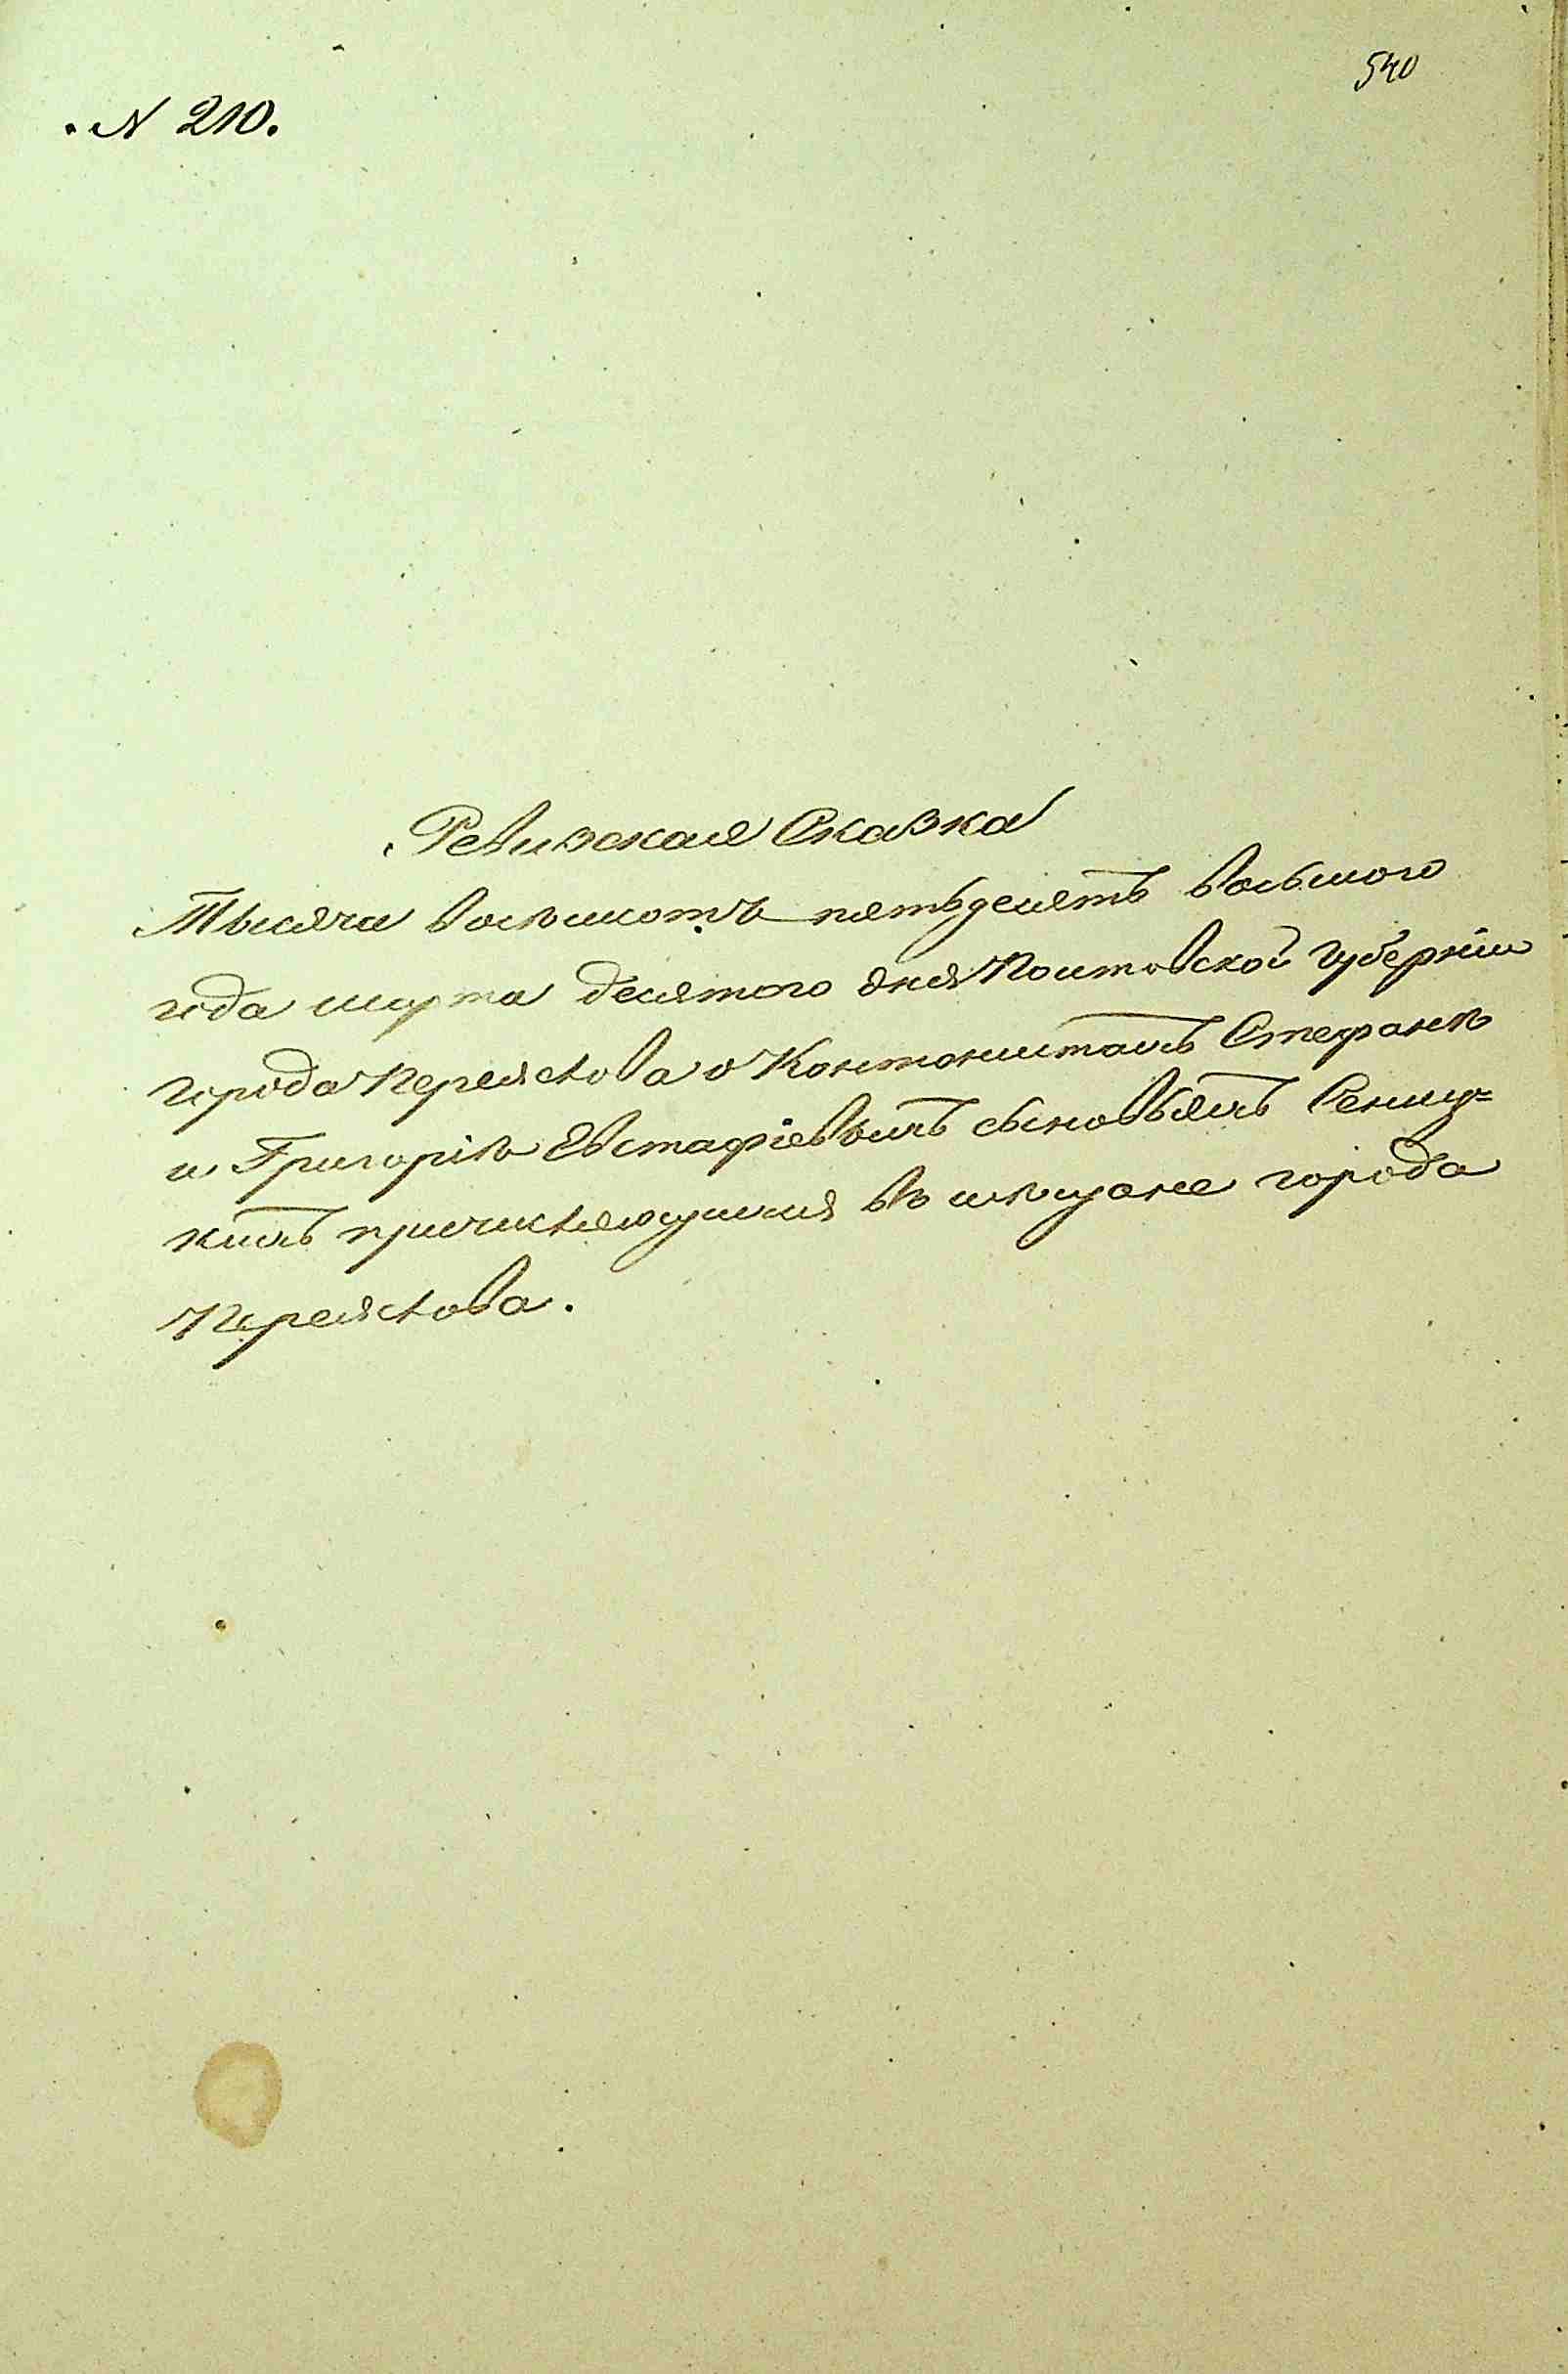 540
№ 210.
Ревизская Сказка
Тысяча восемьсотъ пятьдесятъ восьмого
года марта десятого дня Полтавской Губерніи
города Переяслова о Кантонистахъ Стефанѣ
и Григоріѣ Евстафіевыхъ сыновьяхъ
причисляющихся въ мѣщане города
Переяслова.